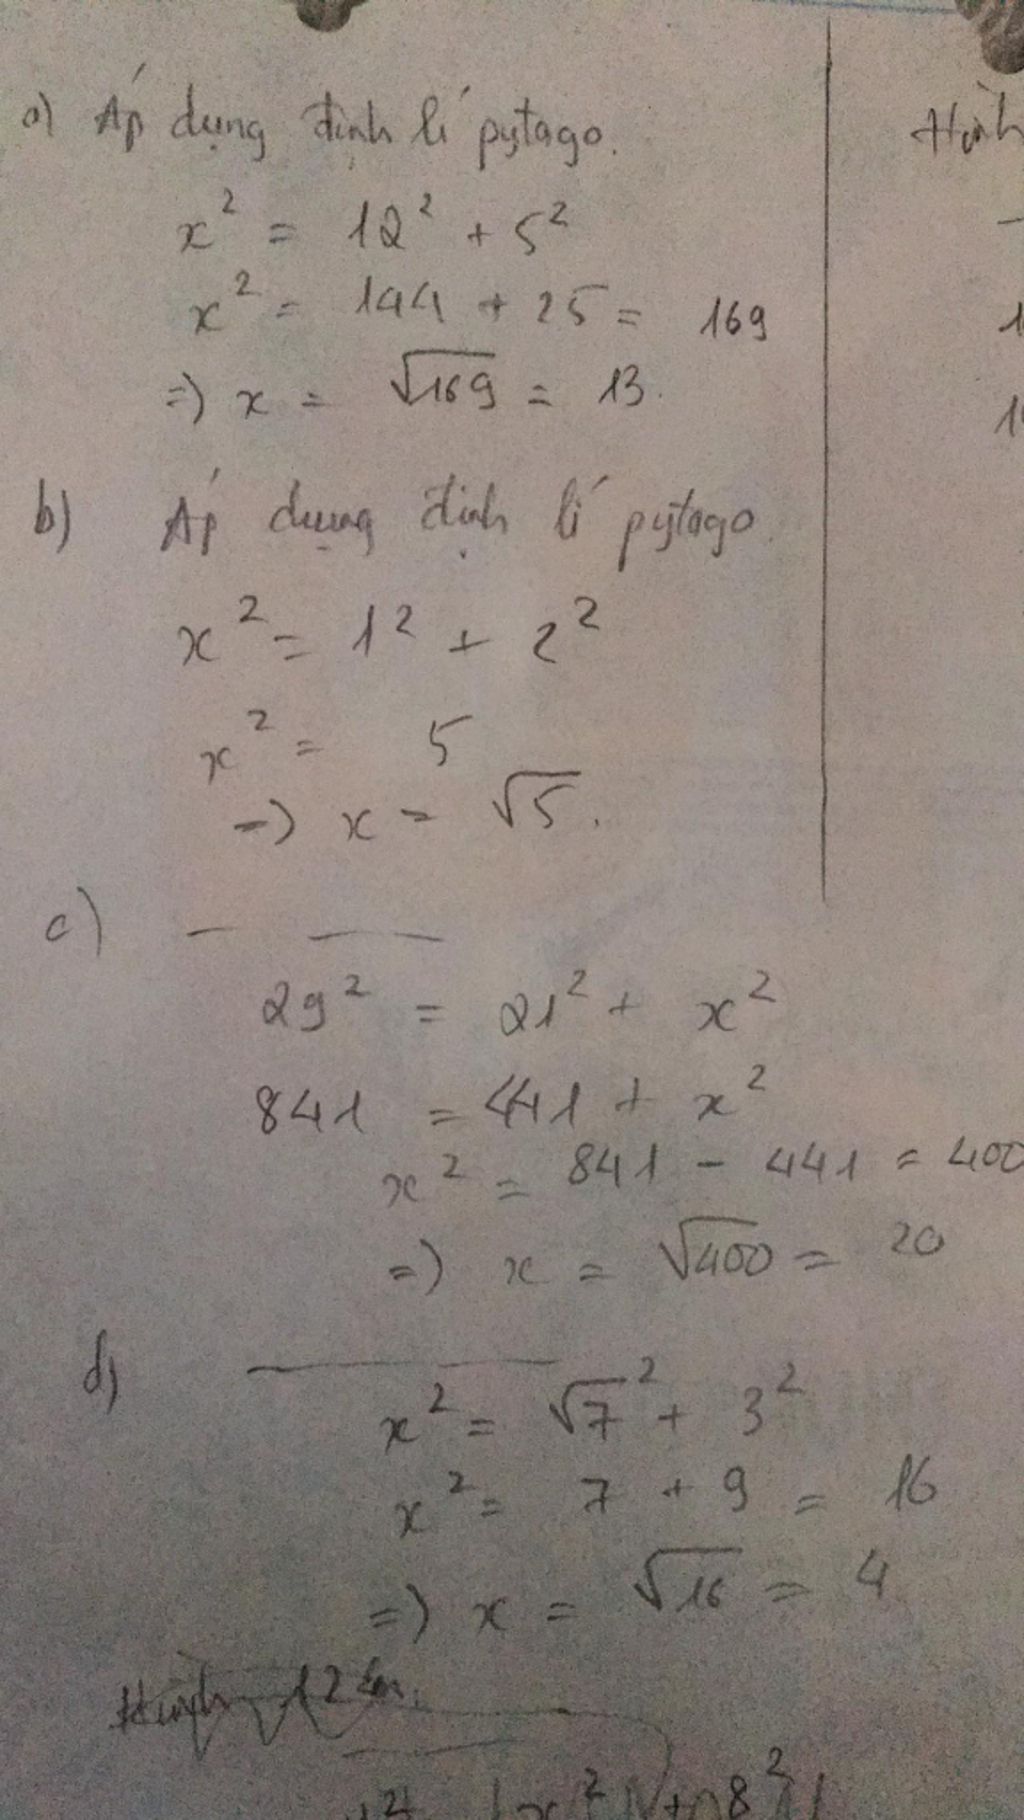 a) Áp dụng định lí pytago.
x² = 12² + 5²
x² = 144 + 25 = 169
=) x = √169 = 13.
b) Áp dụng định lí pytago.
x² = 1² + 2²
x² = 5
=) x = √5.
c) — —
29² = 21² + x²
841 = 441 + x²
x² = 841 - 441 = 400
=) x = √400 = 20
d) — —
x² = √7² + 3²
x² = 7 + 9 = 16
=) x = √16 = 4
Hình